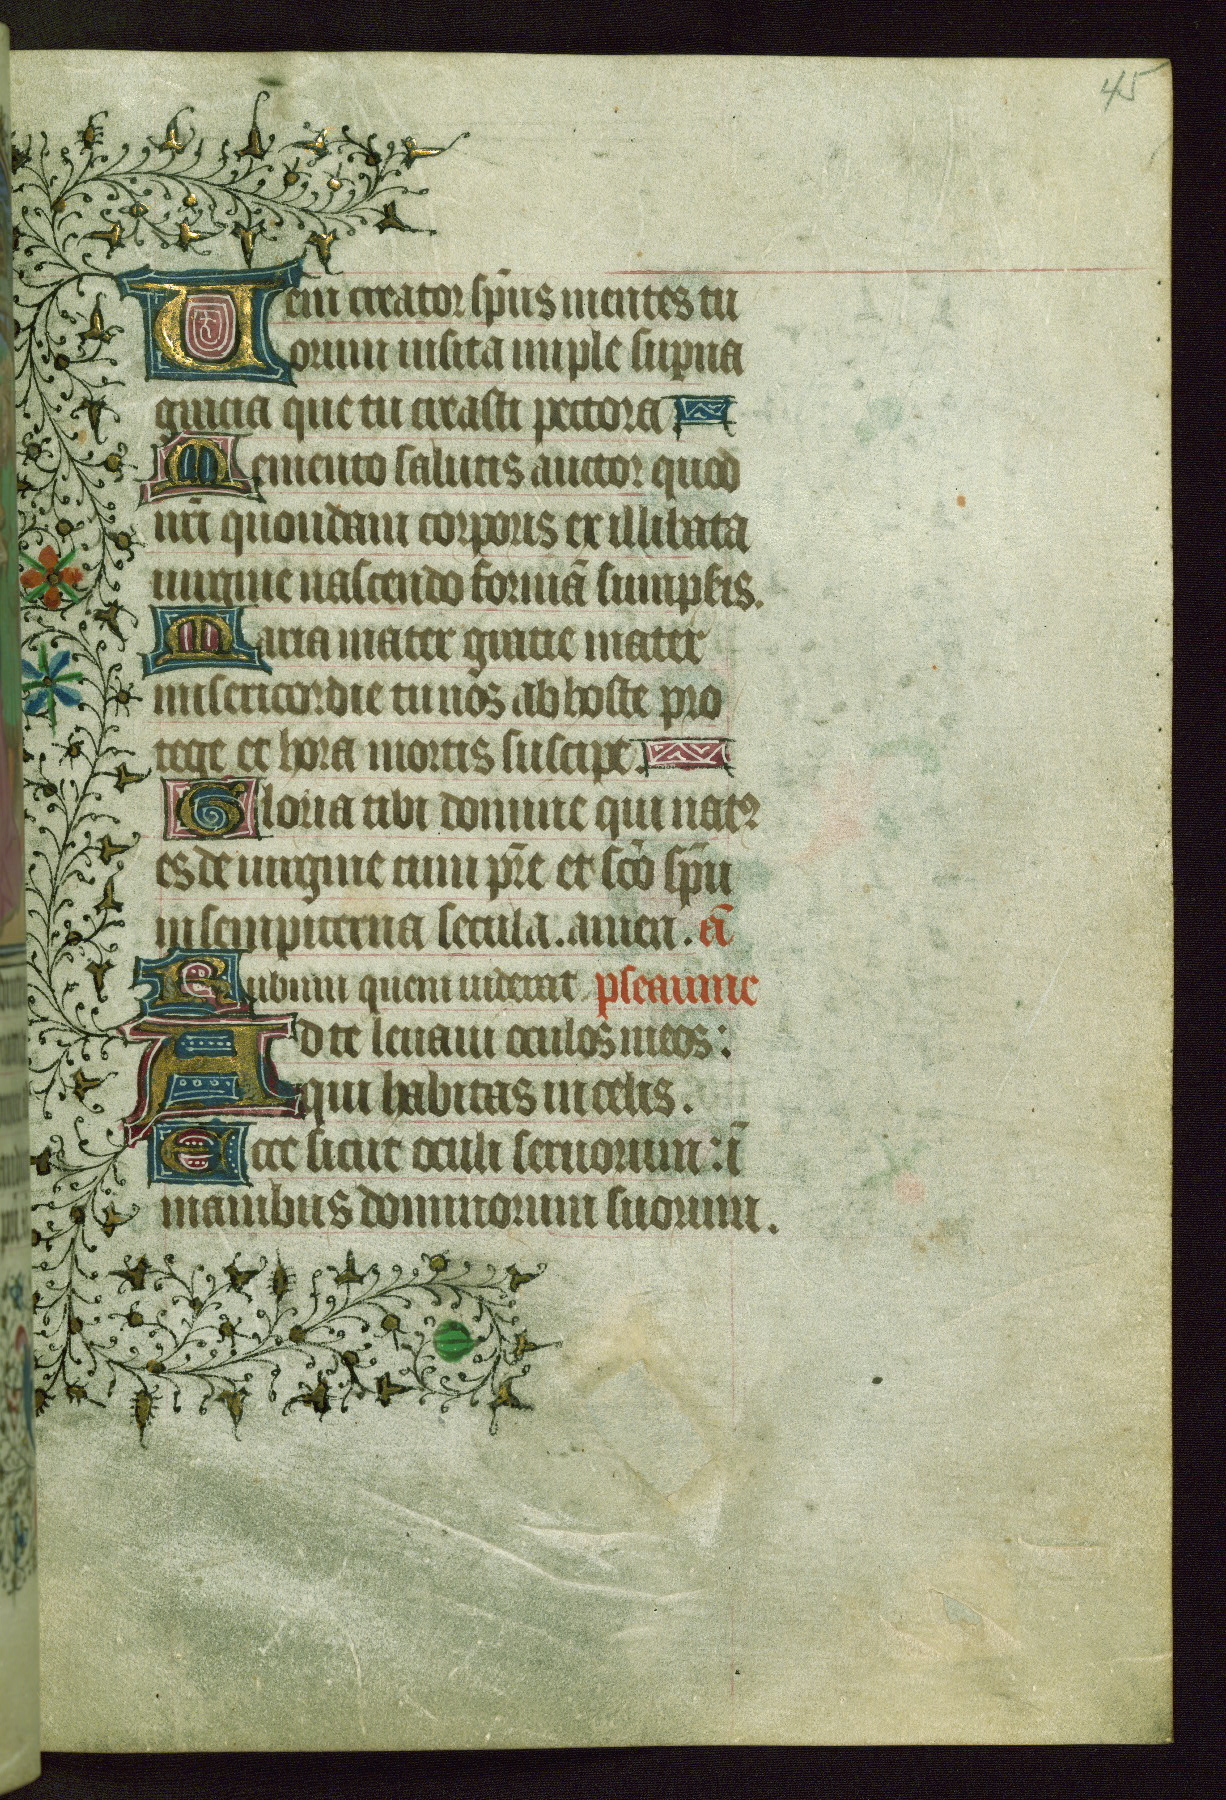 45
Ueni creator sp̃us mentes tu
orum uisita imple sup̲na
gr̃acia que tu creasti pectora
Memento salutis auctor quod
nr̃i quondam corporis ex illibata
uirgine nascendo formã sumpsis.
Maria mater gratie mater
misericordie tu nos ab hoste pro
tege et hora mortis suscipe.
Gloria tibi domine qui natꝰ
es de uirgine cum pr̃e et sc̃o sp̃u
in sempiterna secula. amen. ã
Rubum quem uiderat pseaume
Ad te leuaui oculos meos:
qui habitas in celis.
Ecce sicut oculi seruorum: ĩ
manibus dominorum suorum.